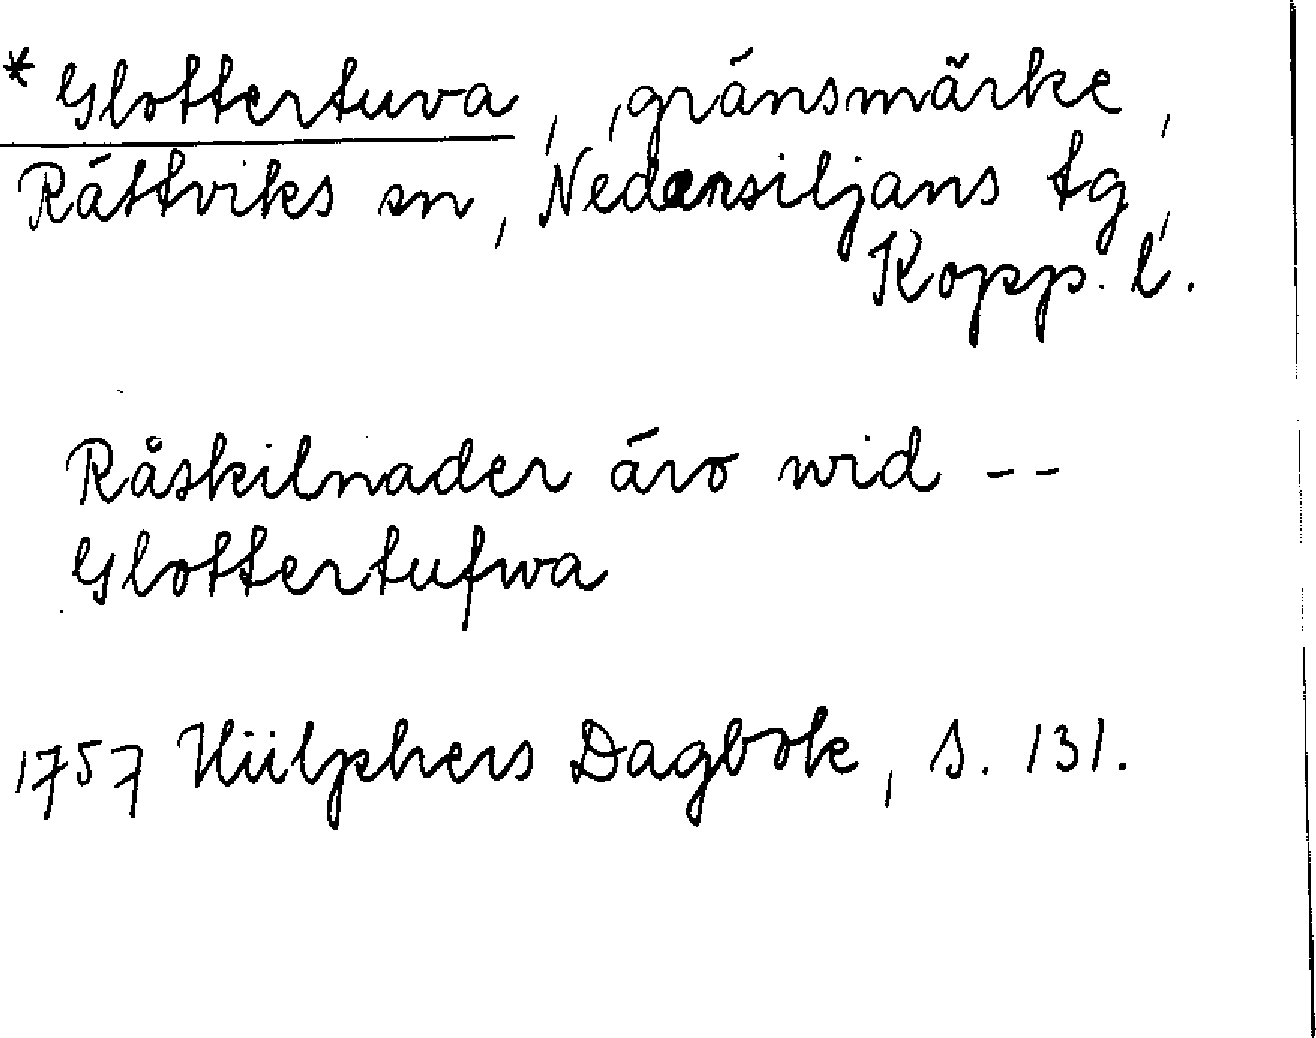 * Glottertuva, gränsmärke,
Rättviks sn, Nedansiljans tg,
Kopp. l.
Råskilnader äro wid --
Glottertufwa
1757 Hülphers Dagbok, s. 131.